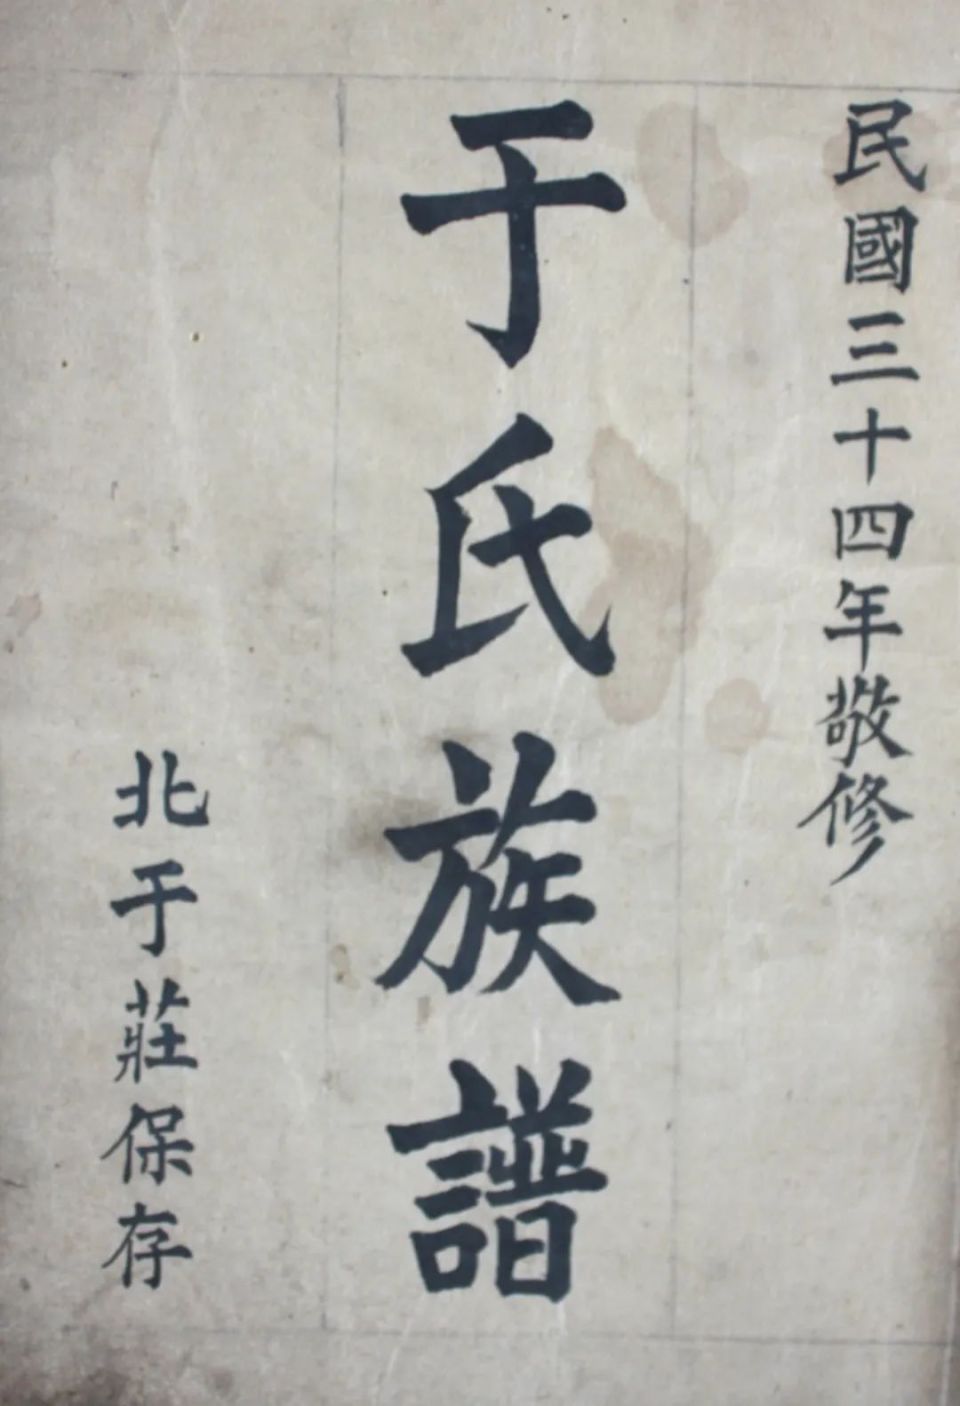 民國三十四年敬修
于氏族譜
北于莊保存